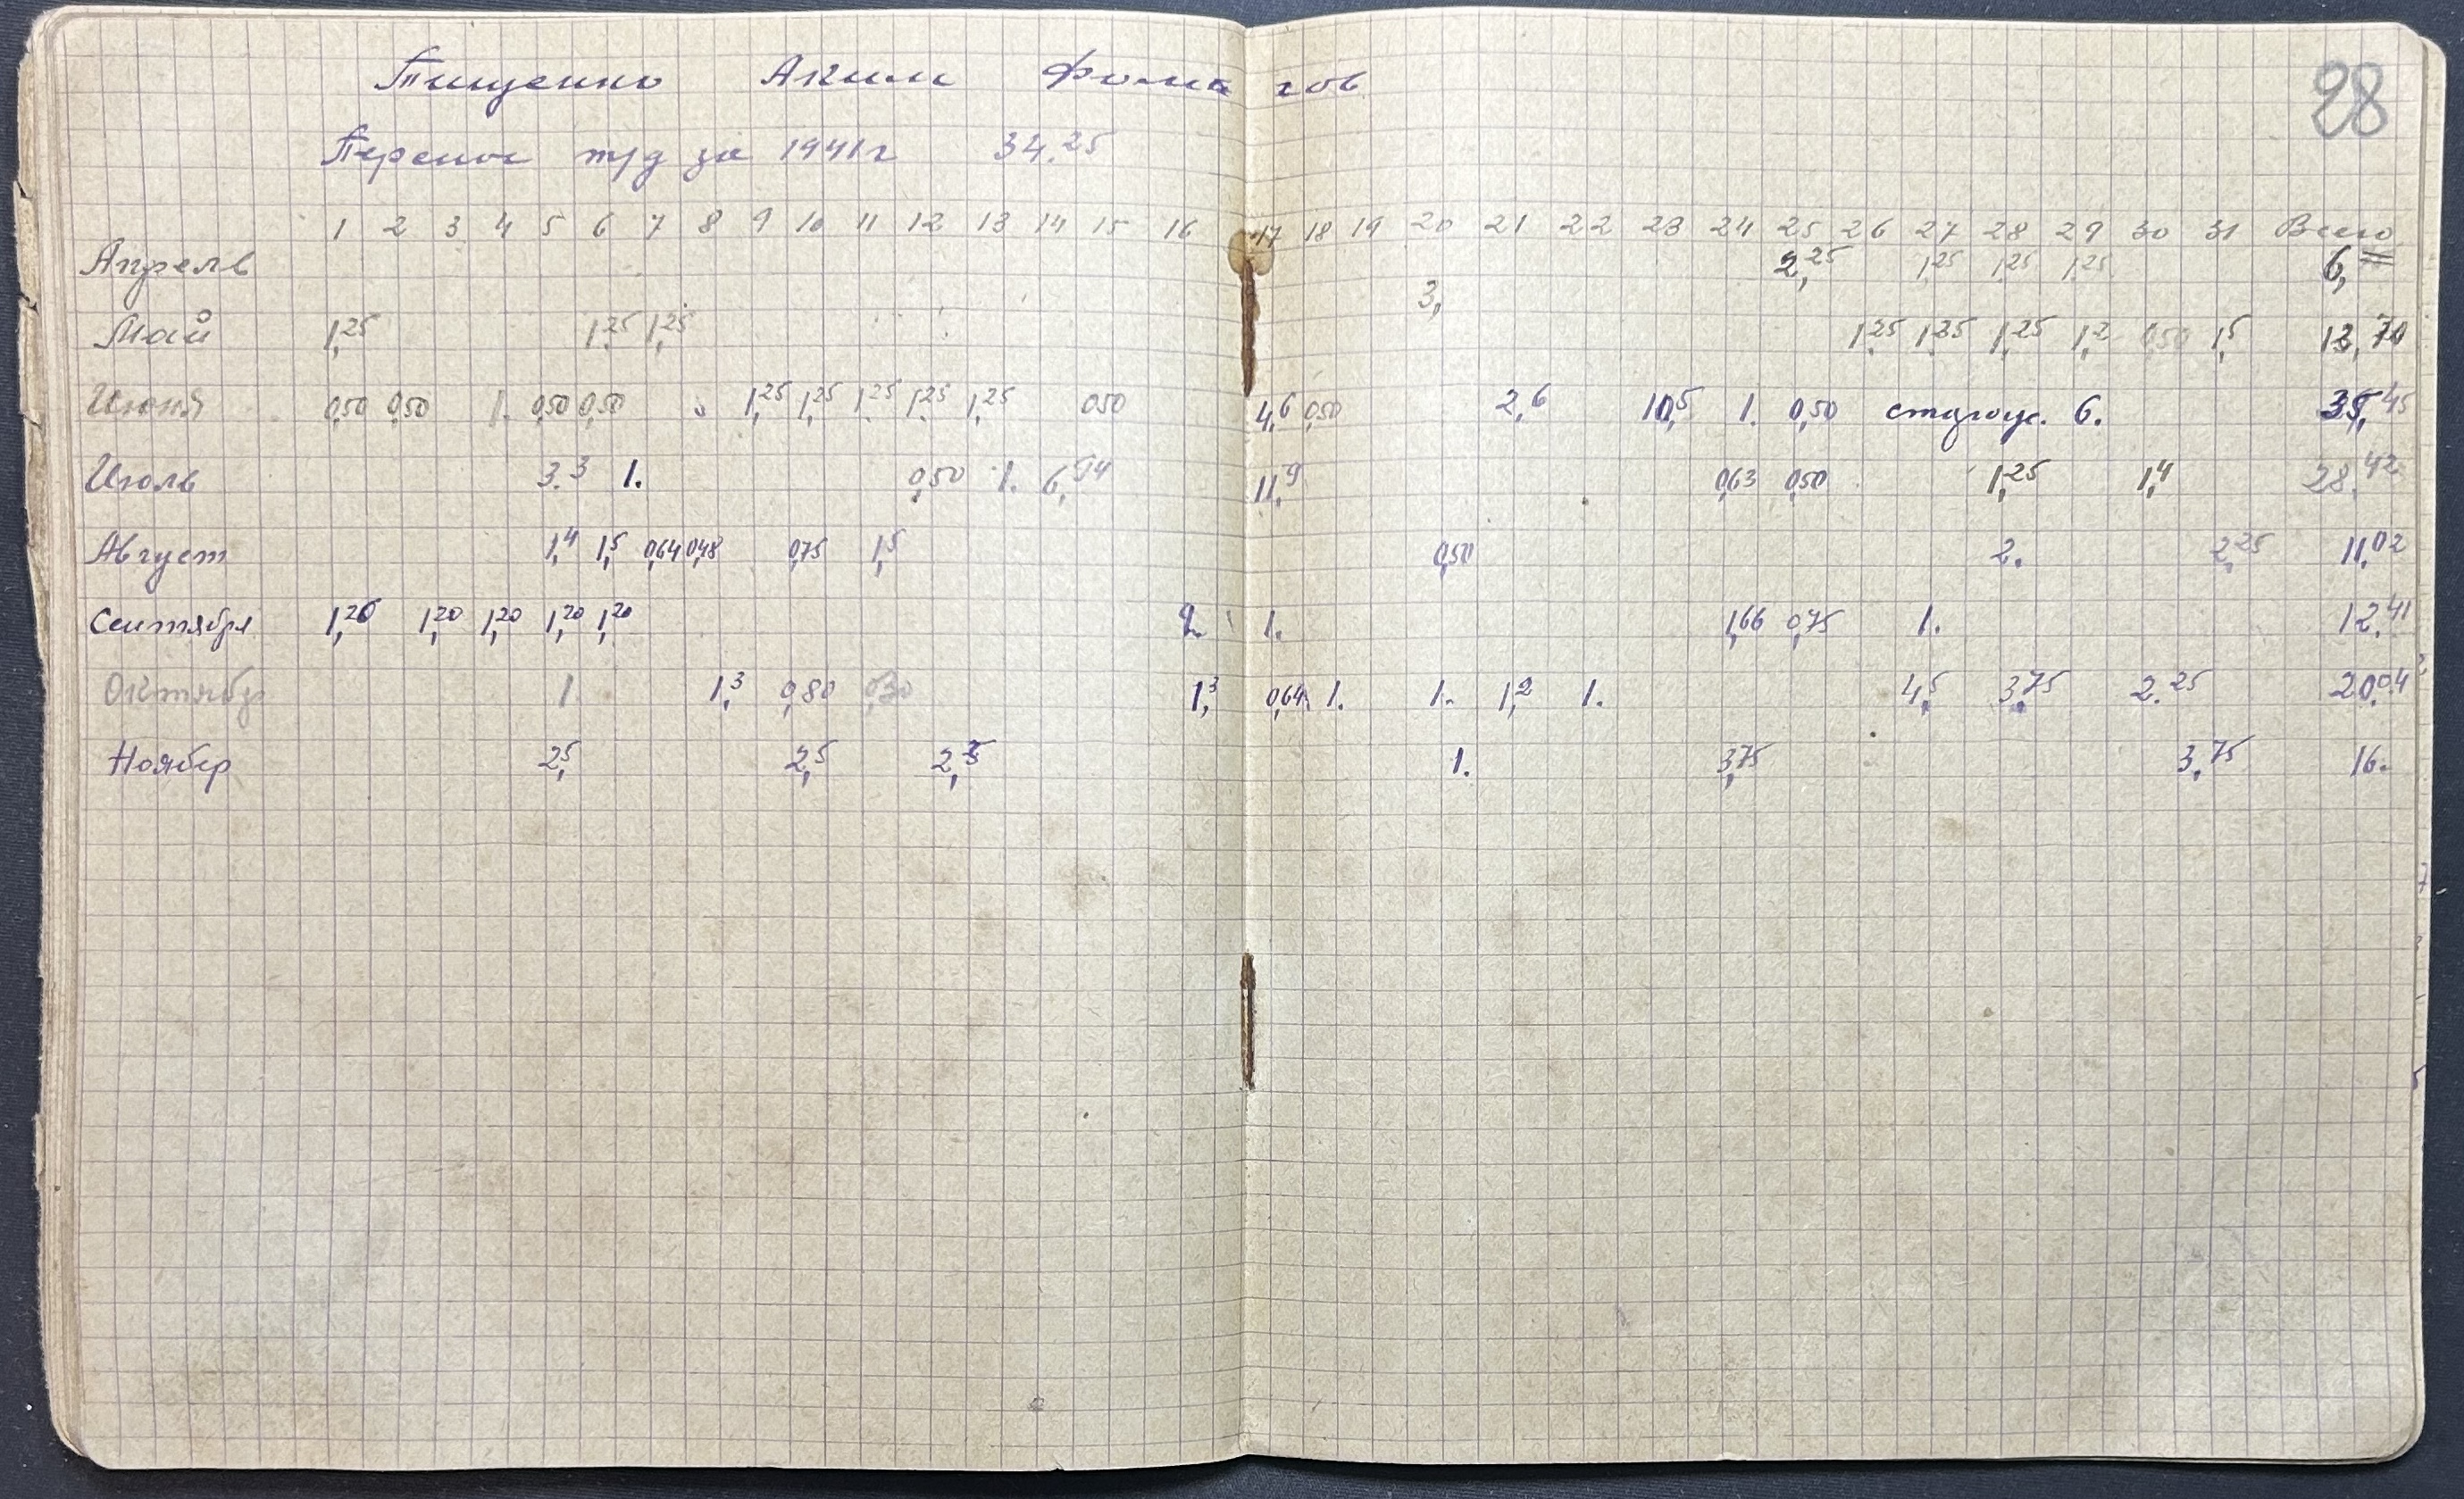 28
Тищенко Аким Фома гов
Перенос т/д за 1941 г 34.25
1 2 3 4 5 6 7 8 9 10 11 12 13 14 15 16 17 18 19 20 21 22 23 24 25 26 27 28 29 30 31 Всего
Апрель 2,25 1,25 1,25 1,25 6,=
Май 1,25 1,25 1,25 3, 1,25 1,25 1,25 1,2 0,50 1,5 13,70
Июня 0,50 0,50 1. 0,50 0,50 1,25 1,25 1,25 1,25 1,25 0,50 4,6 0,50 2,6 10,5 1. 0,50 6. 35,45
Июль 3.3 1. 0,50 1. 6,94 11,9 0,63 0,50 1,25 1,4 28,42
Август 1,4 1,5 0,64 0,48 0,75 1,5 0,50 2. 2,25 11,02
Сентября 1,20 1,20 1,20 1,20 1,20 2. 1. 1,66 0,75 1. 12,41
Октябр 1. 1,3 0,80 0,30 1,3 0,64 1. 1. 1,2 1. 4,5 3,75 2.25 20,04
Ноябер 2,5 2,5 2,5 1. 3,75 3,75 16.